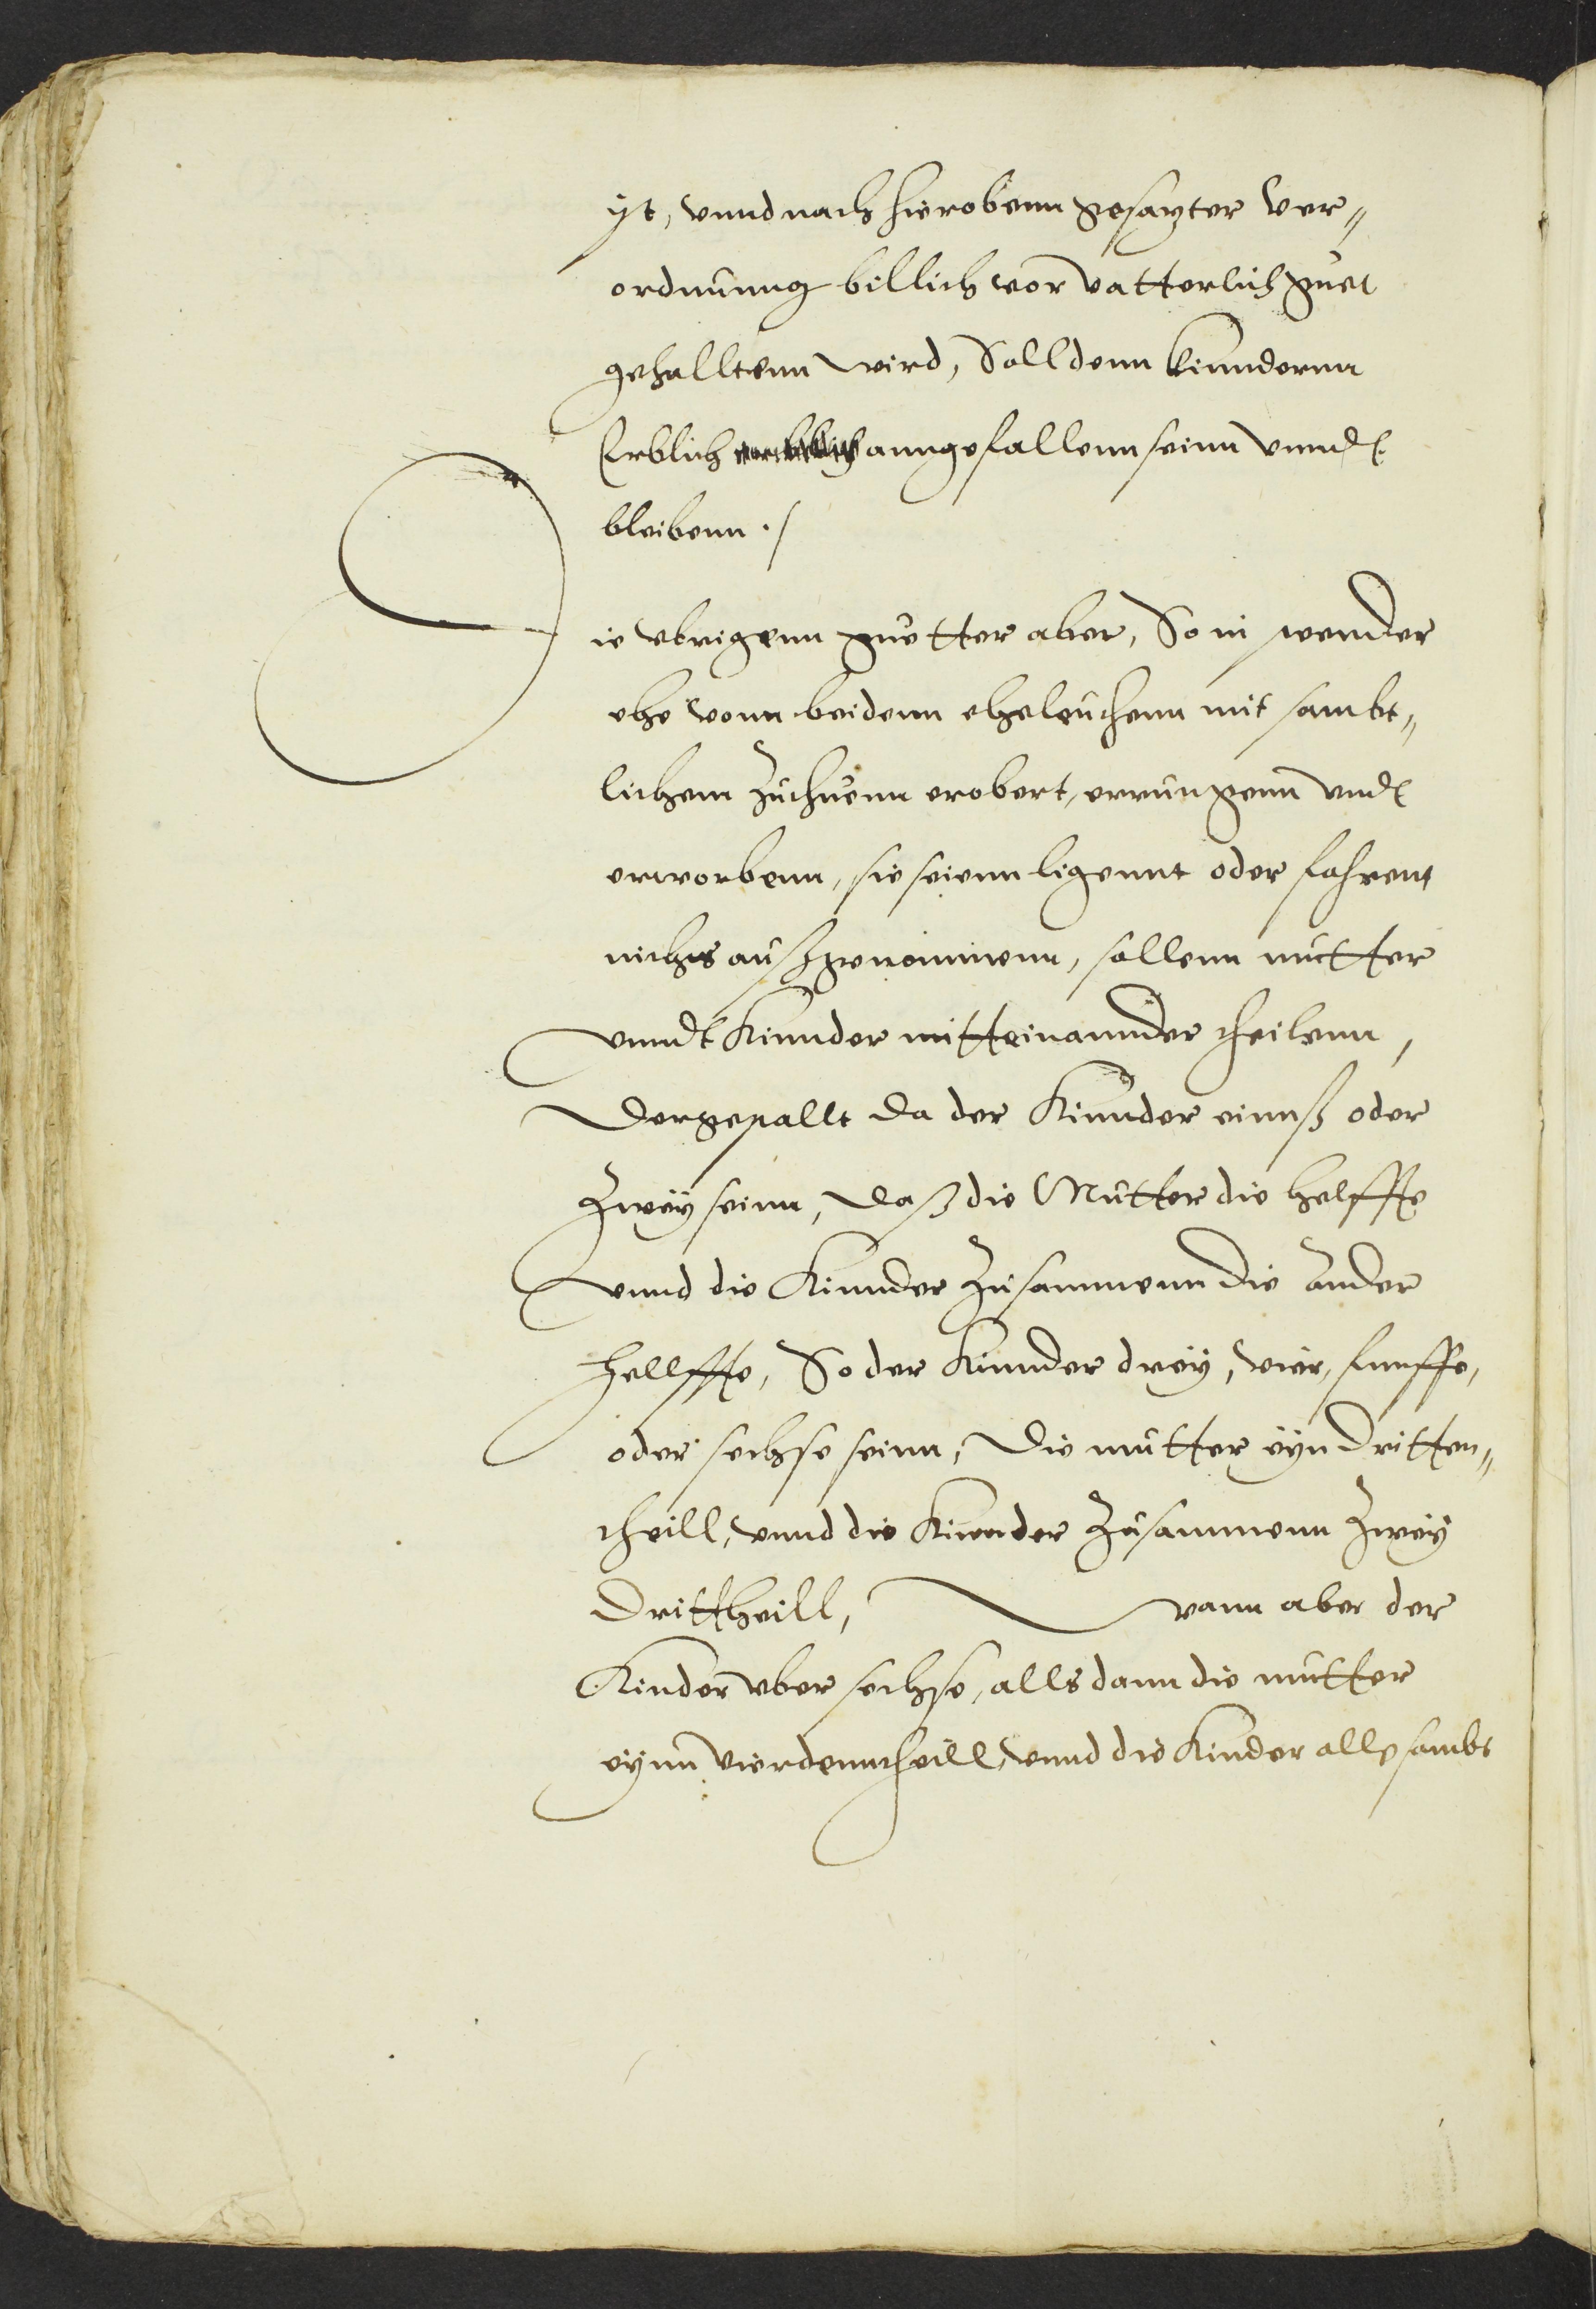 ist, vnnd nach hierobenn gesatzter Ver„
ordnunng billich vor vatterlich guet
gehalltenn wird, Soll denn Kinndernn
Erblich anngefallenn seinn vnnd
bleibenn ./
Die vbrigenn guetter aber, So in werender
ehe vonn beidenn eheleuthenn mit sambt„
lichem zuthuenn erobert, errungenn vnd
erworbenn, sie seienn ligennt oder fahrent
nichts außgenommenn, sollenn mutter
vnndt Kinnder mitteinannder theilenn,
Dergestallt da der Kinnder einnß oder
Zwey seinn, Daß die Mutter die helffte
vnnd die Kinnder Zusammenn die ander
hellffte, So der Kinnder drey, vier, funffe,
oder sechse seinn, Die mutter eyn dritten„
theill, vnnd die Kinnder Zusammenn Zwey
Drittheill, wann aber der
Kinder vber sechse, alls dann die mutter
eynn Vierdenntheill, vnnd die Kinder alle sambt